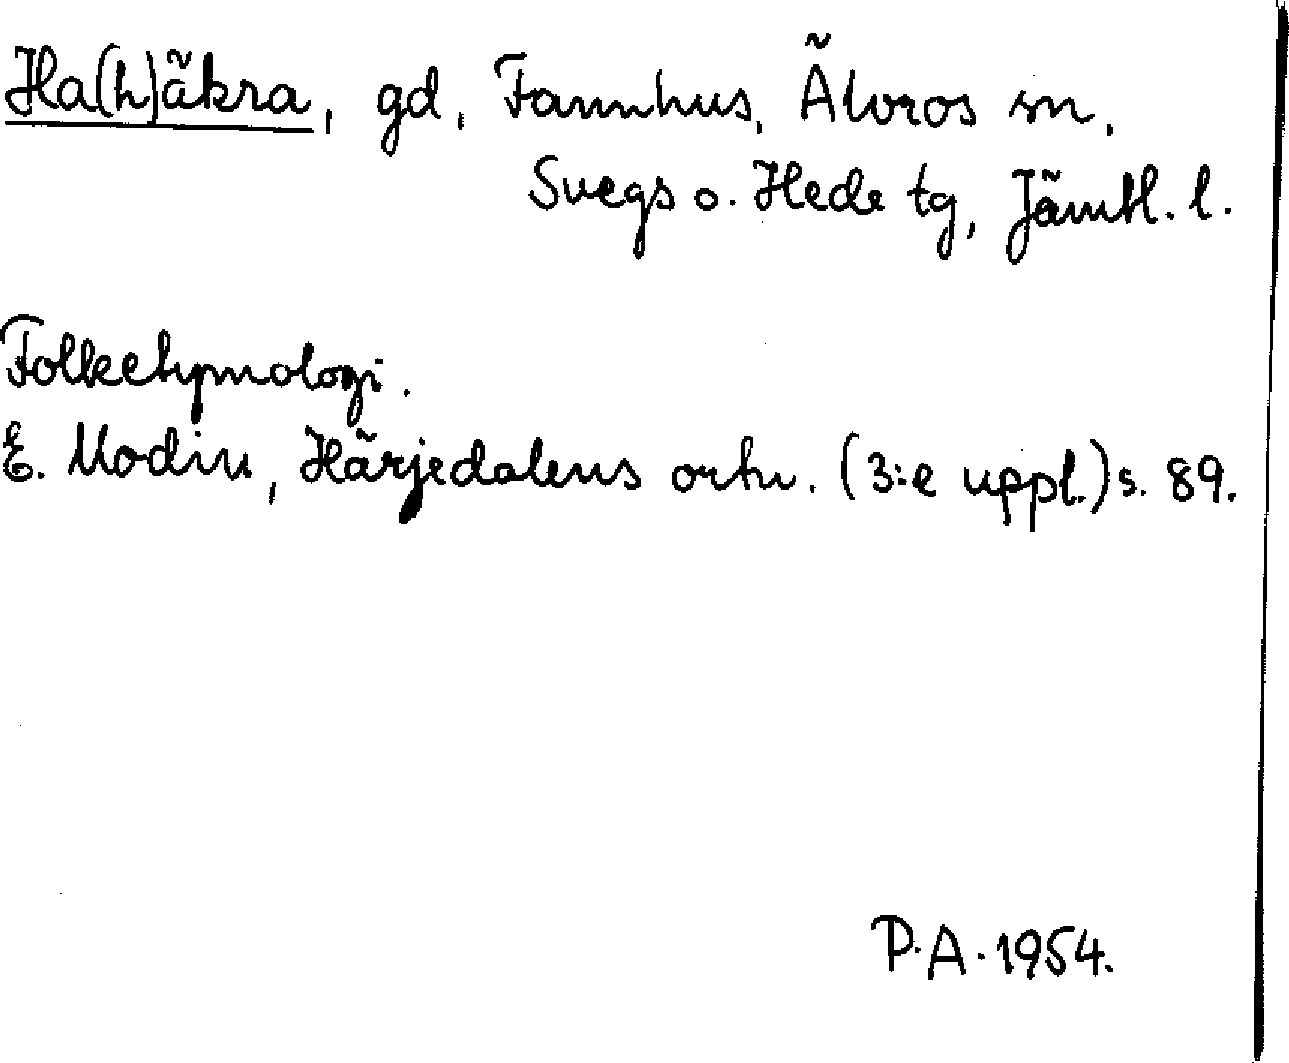 Ha(h)äkra, gd, Fannhus, Älvros sn,
Svegs o. Hede tg, Jämtl. l.
Folketymologi.
E. Modin, Härjedalens ortn. (3:e uppl.) s. 89.
P.A. 1954.